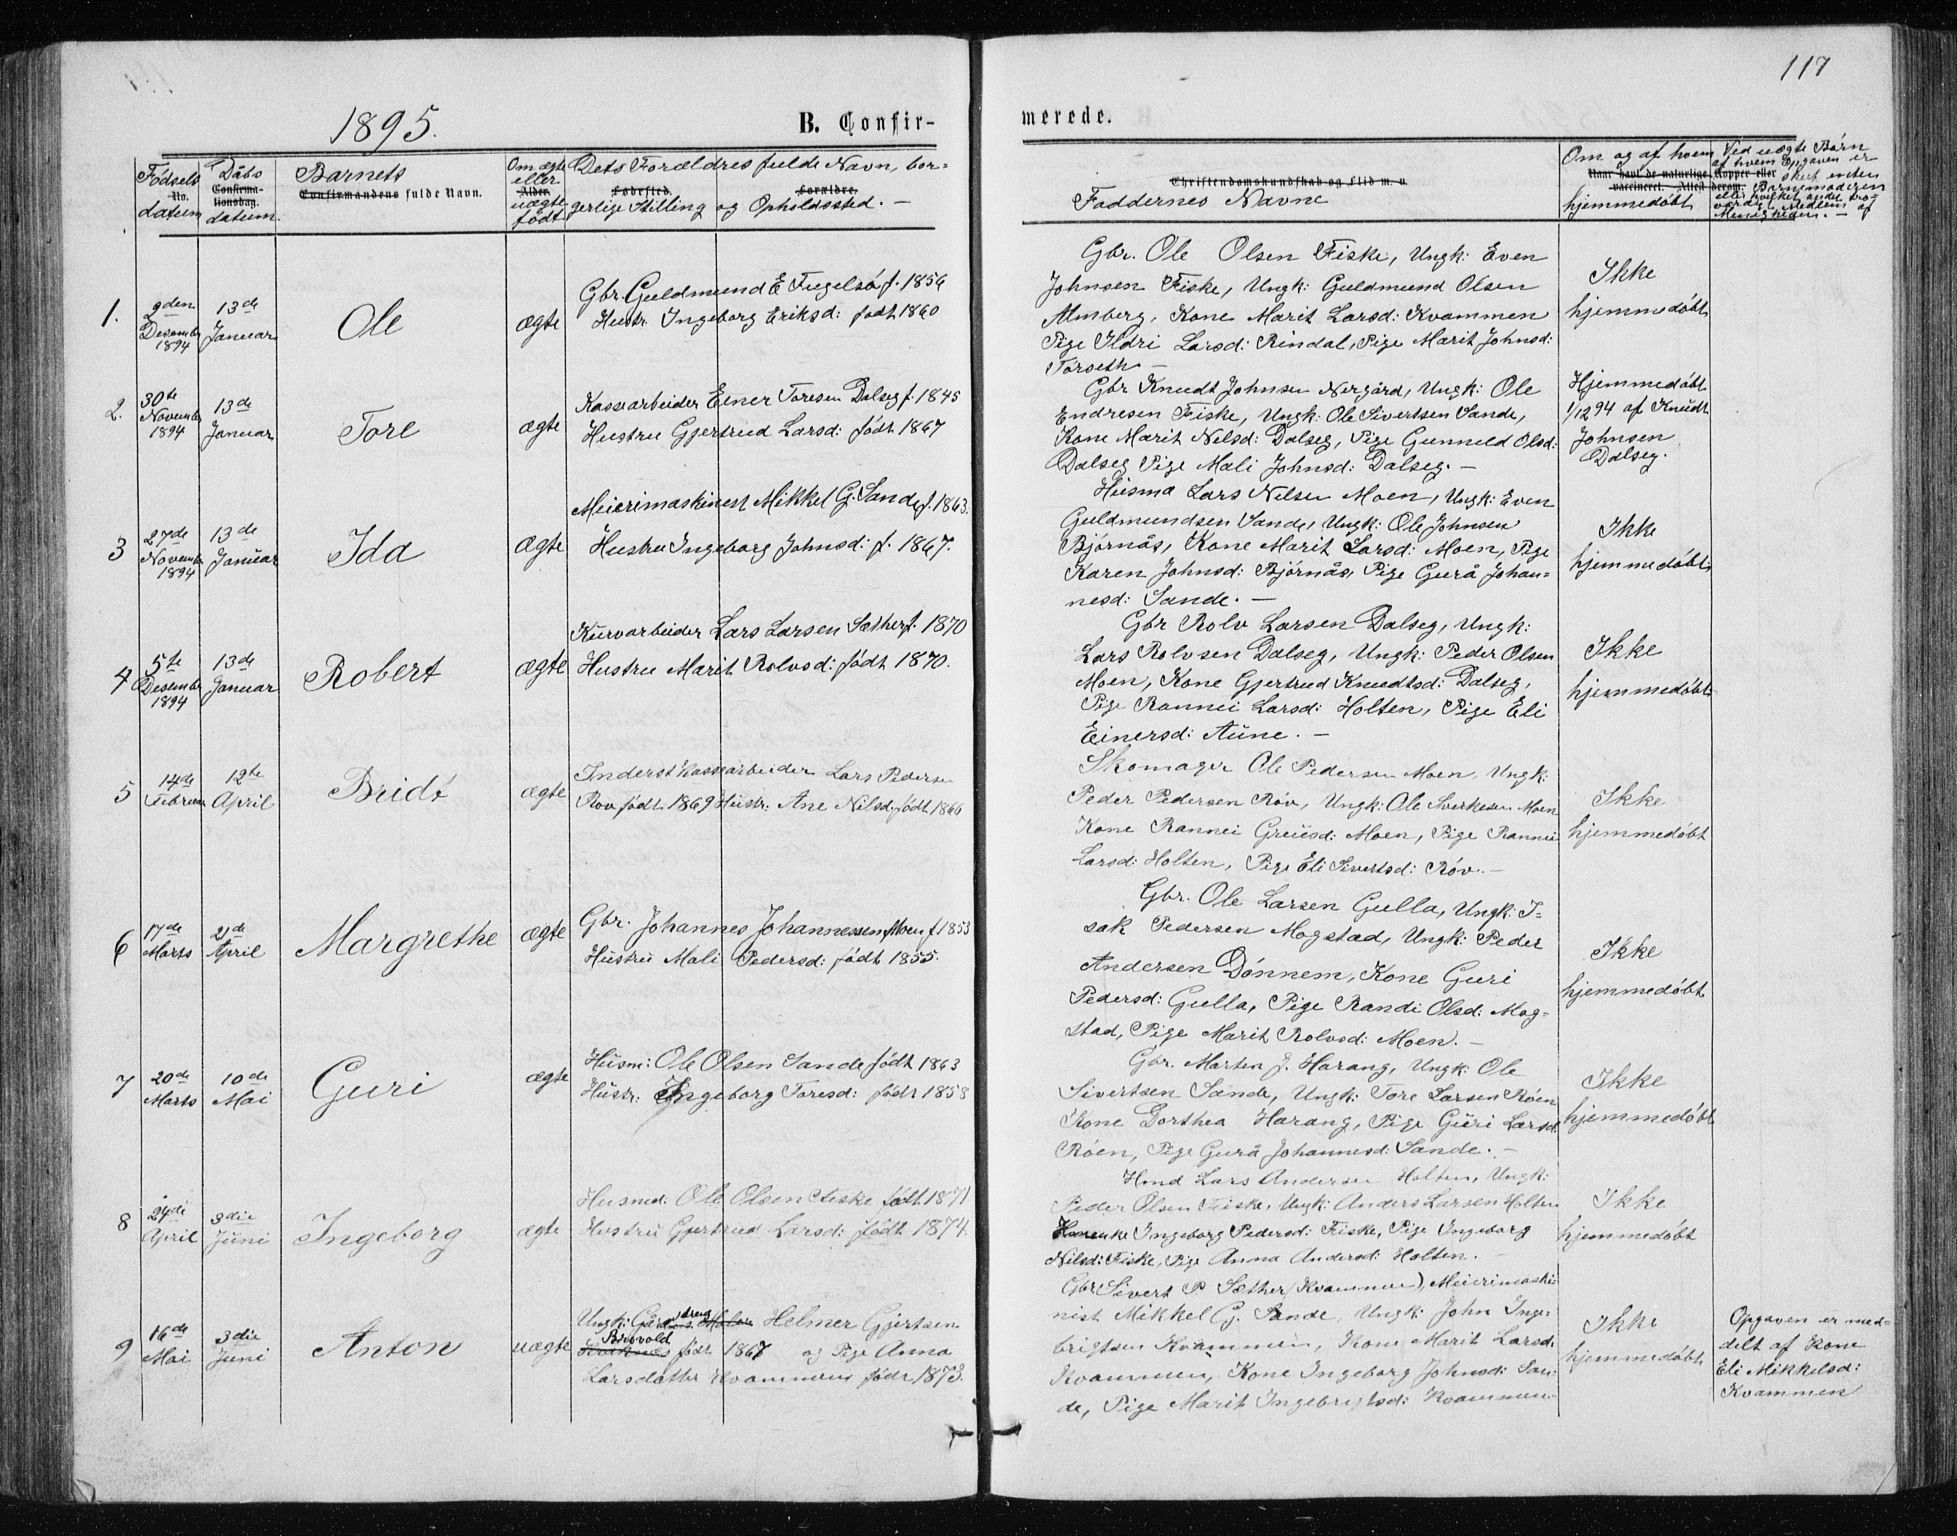 117
1895.
B. Confir-
merede.
Fødsels
No.
datum
Dåbs
Confirma-
tionsdag.
datum.
Barnets
Confirmandens fulde Navn.
Om ægte
eller
Alder.
uægte
født
Dets Forældres fulde Navn, bor-
Fødested.
Forældre.
gerlige Stilling og Opholdssted. —
Christendomskundskab og Flid m. v.
Faddernes Navne
Om og af hvem
Naar havt de naturlige Kopper eller
vaccineret. Attest derom.
hjemmedøbt
Ved uægte Børn
af hvem Opgaven er
sket enten
Barnemoderen
Menigheden. — af
1.
2den
Desember
1894
13de
Januar
Ole
ægte
Gbr. Guldmund E Fugelsø f. 1856
Hustr. Ingeborg Eriksd: født 1860
Gbr. Ole Olsen Fiske, Ungk: Even
Johnsen Fiske, Ungk: Guldmund Olsen
Almberg, Kone Marit Larsd: Kvammen
Pige Ildri Larsd: Rindal, Pige Marit Johnsd:
Torseth —
Ikke
hjemmedøbt
2.
30te
November
1894
13de
Januar
Tore
ægte
Kassearbeider Einer Toresen Dalseg f. 1845
Hustru Gjertrud Larsd: født 1867
Gbr Knudt Johnsen Nergård, Ungk: Ole
Endresen Fiske, Ungk: Ole Sivertsen Sande,
Kone Marit Nilsd: Dalseg, Pige Gunneld Olsd:
Dalseg Pige Mali Johnsd: Dalseg. —
Hjemmedøbt
1/12 94 af Knudt
Johnsen
Dalseg.
3
27de
November
1894
13de
Januar
Ida
ægte
Meierimaskinest Mikkel G. Sande f. 1863.
Hustru Ingeborg Johnsd: f. 1867.
Husma Lars Nilsen Moen, Ungk: Even
Guldmundsen Sande, Ungk: Ole Johnsen
Bjørnås, Kone Marit Larsd: Moen, Pige
Karen Johnsd: Bjørnås, Pige Gurå Johan-
nesd: Sande. —
Ikke
hjemmedøbt
4
5te
Desember
1894
13de
Januar
Robert
ægte
Kurvarbeider Lars Larsen Sæther f. 1870
Hustru Marit Rolvsd: født 1870.
Gbr Rolv Larsen Dalseg, Ungk:
Lars Rolvsen Dalseg, Ungk: Peder Olsen
Moen, Kone Gjertrud Knudtsd: Dalseg,
Pige Rannei Larsd: Holten, Pige Eli
Einersd: Aune. —
Ikke
hjemmedøbt
5
14de
Februar
12te
April
Bridt
ægte
Inderst Kassearbeider Lars Pedersen
Røv født 1869 Hustr: Ane Nilsd: født 1866
Skomager Ole Pedersen Moen, Ungk:
Peder Pedersen Røv, Ungk: Ole Sverkesen Moen
Kone Rannei Greiisd: Moen, Pige Rannei
Larsd: Holten, Pige Eli Sivertsd: Røv. —
Ikke
hjemmedøbt
6
17de
Marts
21de
April
Margrethe
ægte
Gbr. Johannes Johannessen Moen f. 1853
Hustru Mali Pedersd: født 1855.
Gbr. Ole Larsen Gulla, Ungk: I-
sak Pedersen Mogstad, Ungk: Peder
Andersen Dønnem, Kone Guri
Pedersd: Gulla, Pige Randi Olsd: Mog-
stad, Pige Marit Rolvsd: Moen. —
Ikke
hjemmedøbt
7
20de
Marts
10de
Mai
Guri
ægte
Husm: Ole Olsen Sande født 1863
Hustr: Ingeborg Toresd: født 1858
Gbr. Marten J. Harang, Ungk: Ole
Sivertsen Sande, Ungk: Tore Larsen Røen
Kone Dorthea Harang, Pige Guri Larsd:
Røen, Pige Gurå Johannesd: Sande. —
Ikke
hjemmedøbt
8
24de
April
3die
Juni
Ingeborg
ægte
Husmd: Ole Olsen Fiske født 1871
Hustru Gjertrud Larsd: født 1874.
Hmd Lars Andersen Holten, Ungk:
Peder Olsen Fiske, Ungk: Anders Larsen Holten
Enke Ingeborg Pedersd: Fiske, Pige Ingeborg
Nilsd: Fiske, Pige Anna Andersd: Holten. —
Ikke
hjemmedøbt
9
16de
Mai
3die
Juni
Anton
uægte
Ungk: Gårdsdreng Helmer Gjertsen
Brøvold født 1867 og Pige Anna
Larsdatter Kvammen født 1873.
Gbr Sivert P Sæther (Kvammen), Meierimaski-
nist Mikkel G. Sande, Ungk: John Inge-
brigtsen Kvammen, Kone Marit Larsd:
Kvammen, Kone Ingeborg Johnsd: San-
de, Pige Marit Ingebrigtsd: Kvammen
Ikke
hjemmedøbt
Opgaven er med-
delt af Kone
Eli Mikkelsd:
Kvammen